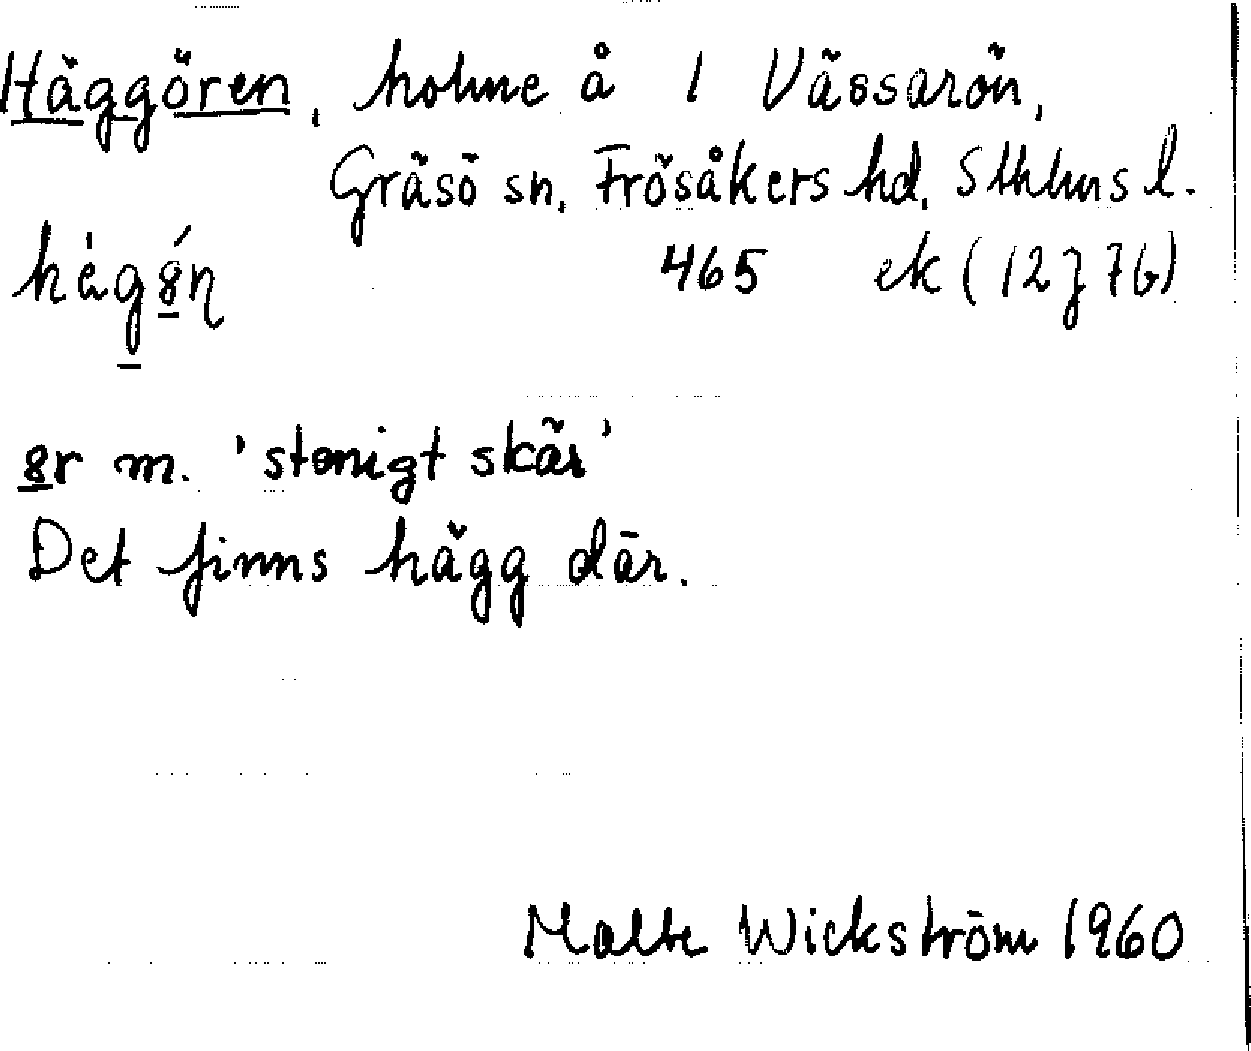 Häggören, holme å 1 Vässarön,
Gräsö sn. Frösåkers hd. Sthlms l.
hè̀gȣ́ŋ 465 ek (12j7b)
ȣr m. 'stenigt skär'
Det finns hägg där.
Malte Wickström 1960